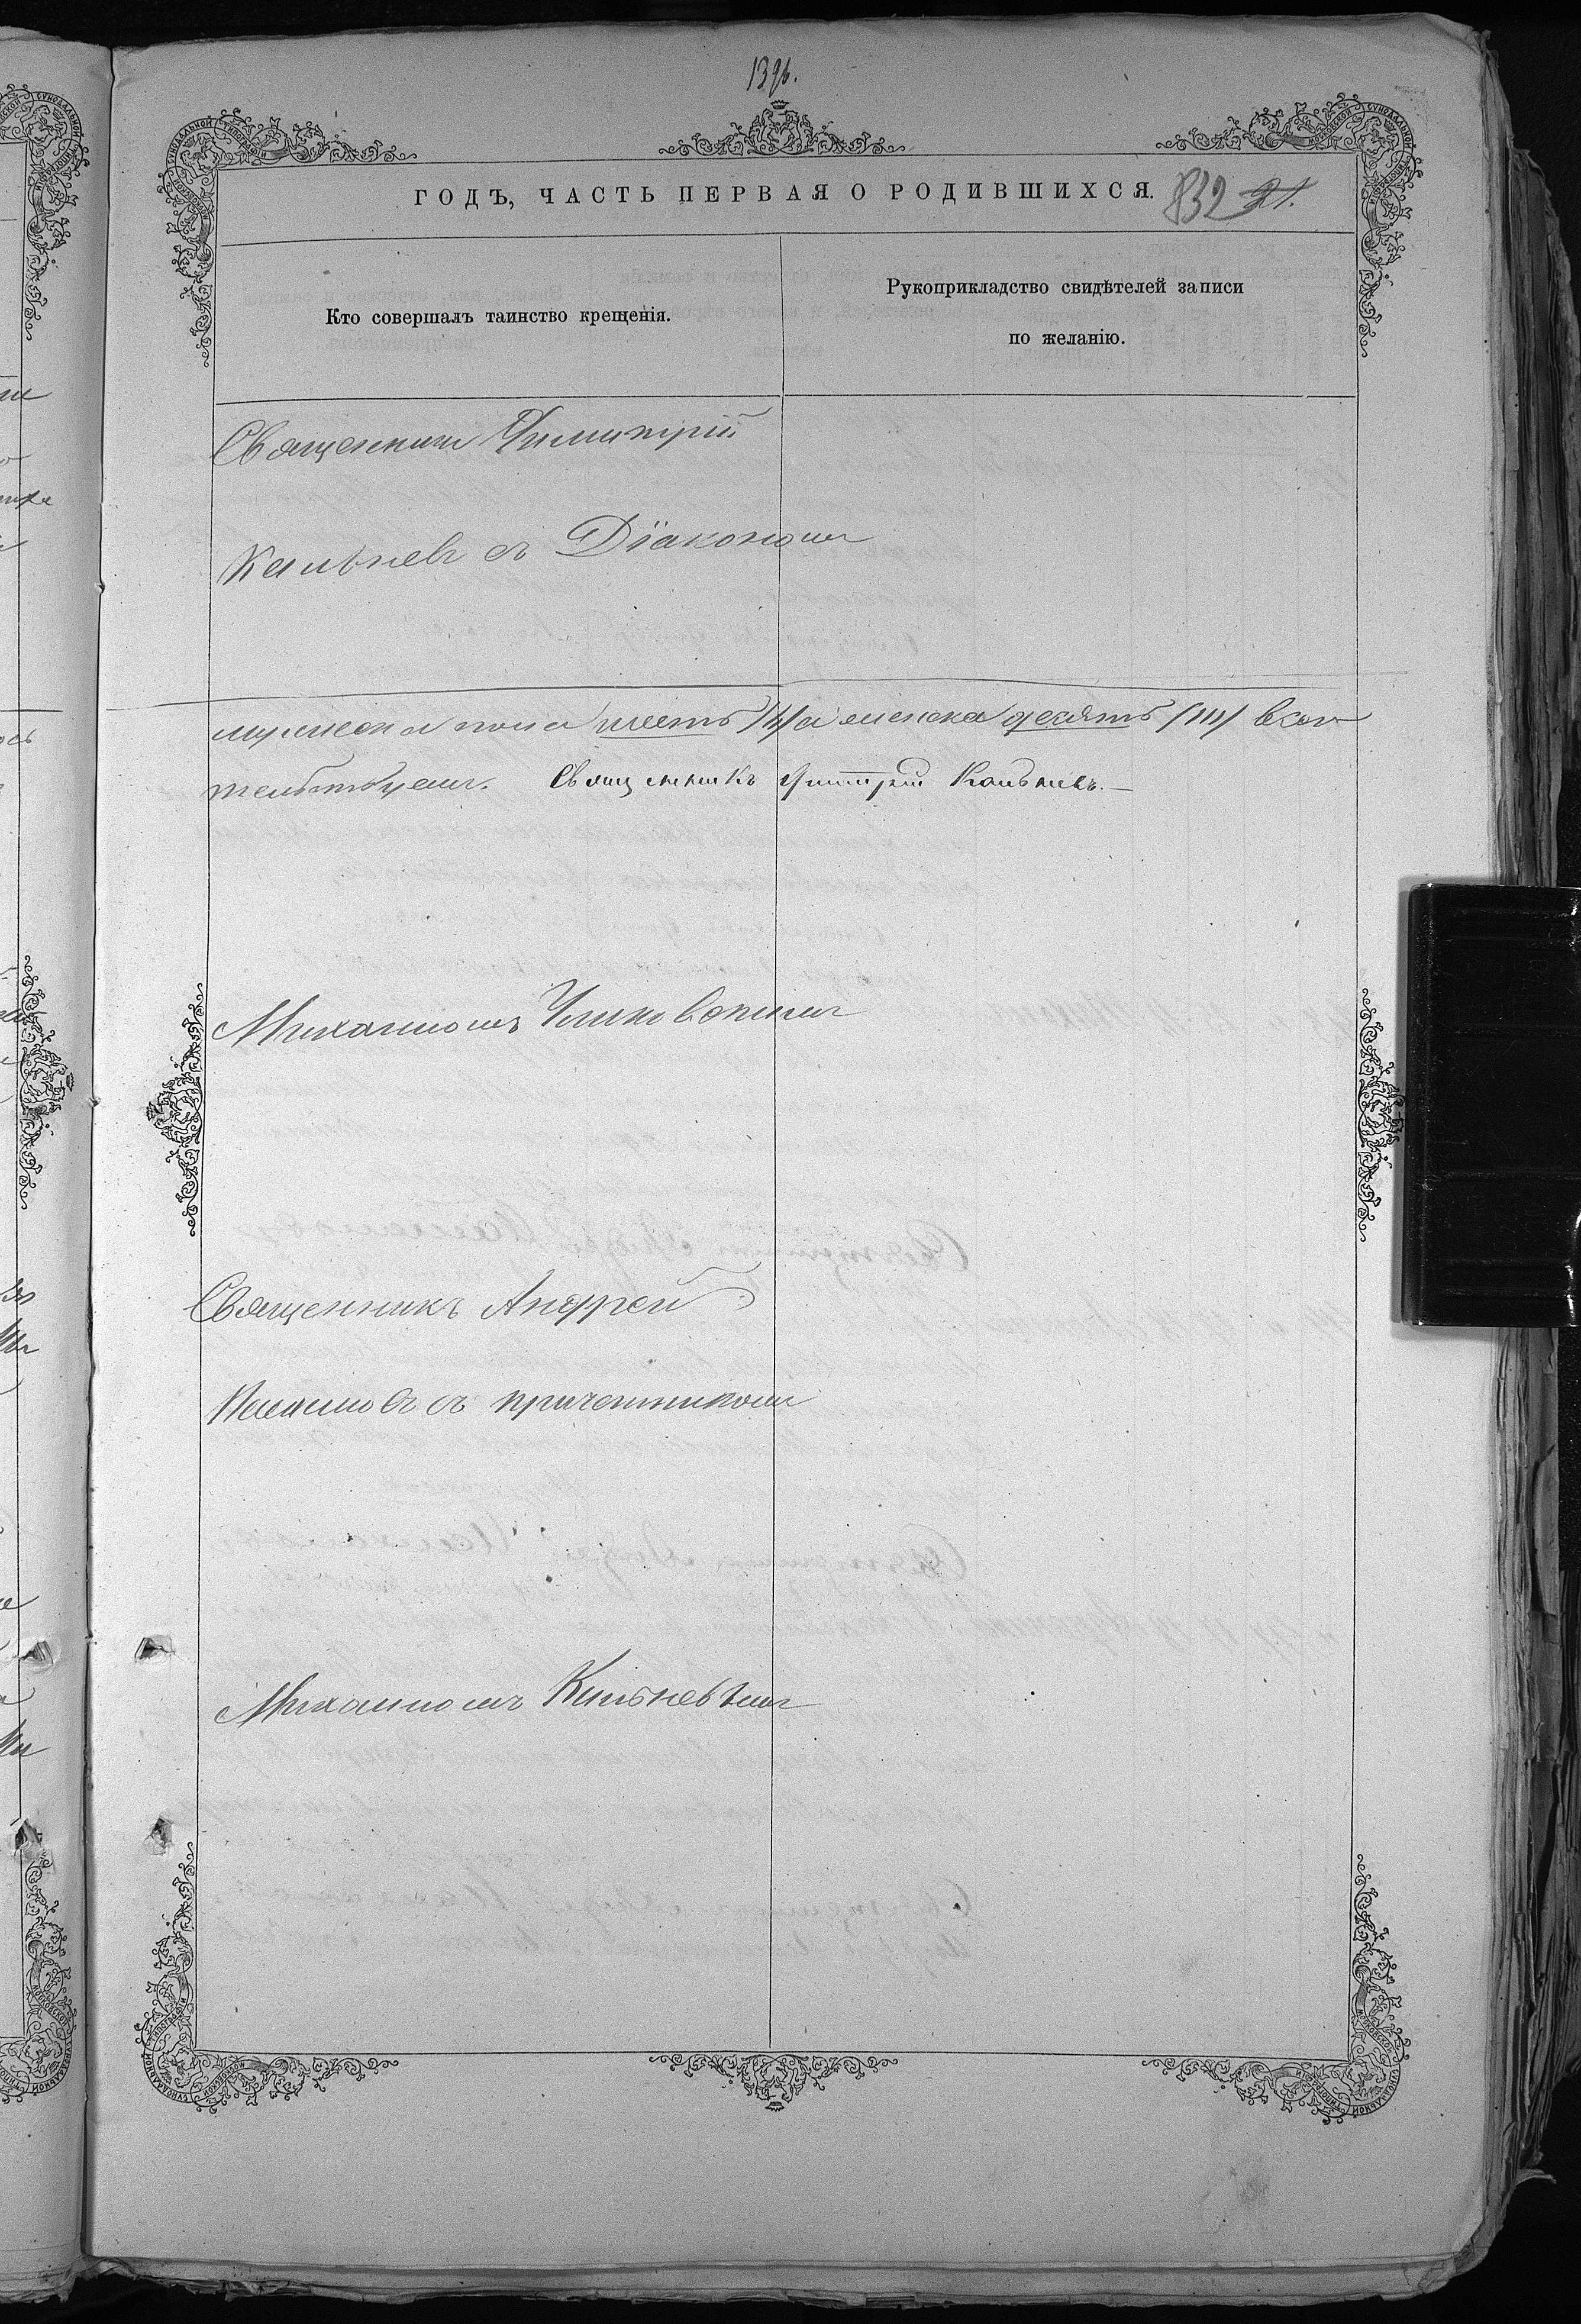 139б.
ГОДЪ, ЧАСТЬ ПЕРВАЯ О РОДИВШИХСЯ.
832 21.
Кто совершалъ таинство крещенія.
Рукоприкладство свидѣтелей записи
по желанію.
Священникъ Димитрій
Кальневъ съ Діакономъ
мужеска пола шесть а женска десять
тельствуемъ. Священникъ Димитрій Кальневъ.—
Михаиломъ
Священникъ Андрей
съ причетникомъ
Михаиломъ